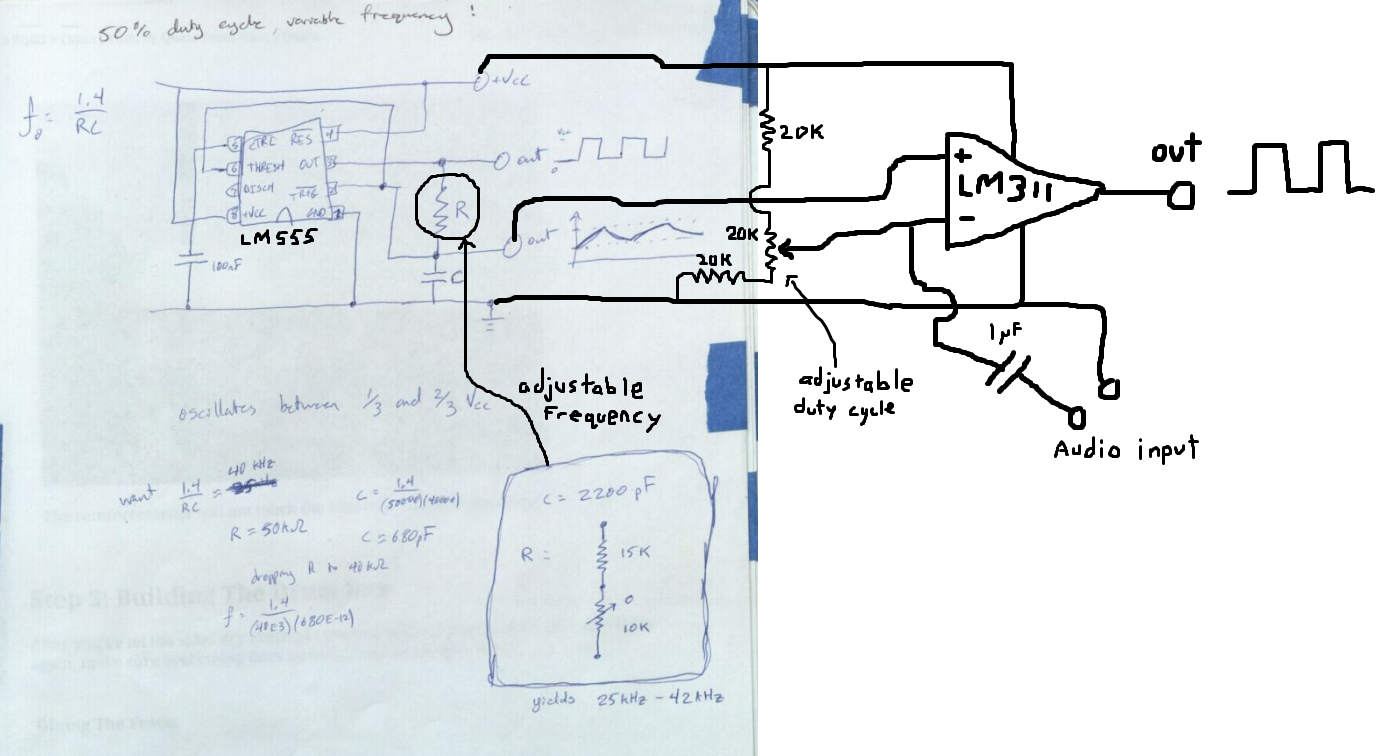 50% duty cycle, variable frequency!
f₀ = 1.4 / RC
+Vcc
5 CTRL RES 4
6 THRESH OUT 3
7 DISCH TRIG 2
8 +VCC GND 1
LM555
100nF
R
C
out
Vcc
0
out
20K
20K
20K
+
LM311
-
out
1µF
adjustable
duty cycle
Audio input
adjustable
Frequency
oscillates between 1/3 and 2/3 Vcc
want 1.4 / RC = 40 kHz
R = 50kΩ
C = 1.4 / (50000)(40000)
C = 680pF
dropping R to 40kΩ
f = 1.4 / (40E3)(680E-12)
C = 2200pF
R =
15K
10K
yields 25kHz - 42kHz
Step 3: Building The